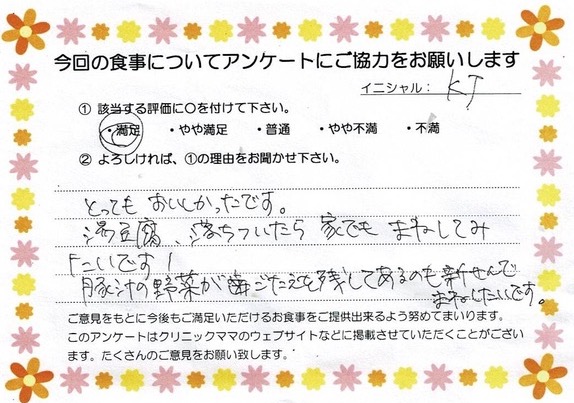 今回の食事についてアンケートにご協力をお願いします
イニシャル： KJ
① 該当する評価に〇を付けて下さい。
・満足 ・やや満足 ・普通 ・やや不満 ・不満
② よろしければ、①の理由をお聞かせ下さい。
とっても おいしかったです。
湯豆腐、落ちついたら 家でも まねしてみ
たいです！
豚汁の野菜が歯ごたえを残してあるのも新せんで
まねしたいです。
ご意見をもとに今後もご満足いただけるお食事をご提供出来るよう努めてまいります。
このアンケートはクリニックママのウェブサイトなどに掲載させていただくことがござい
ます。たくさんのご意見をお願い致します。